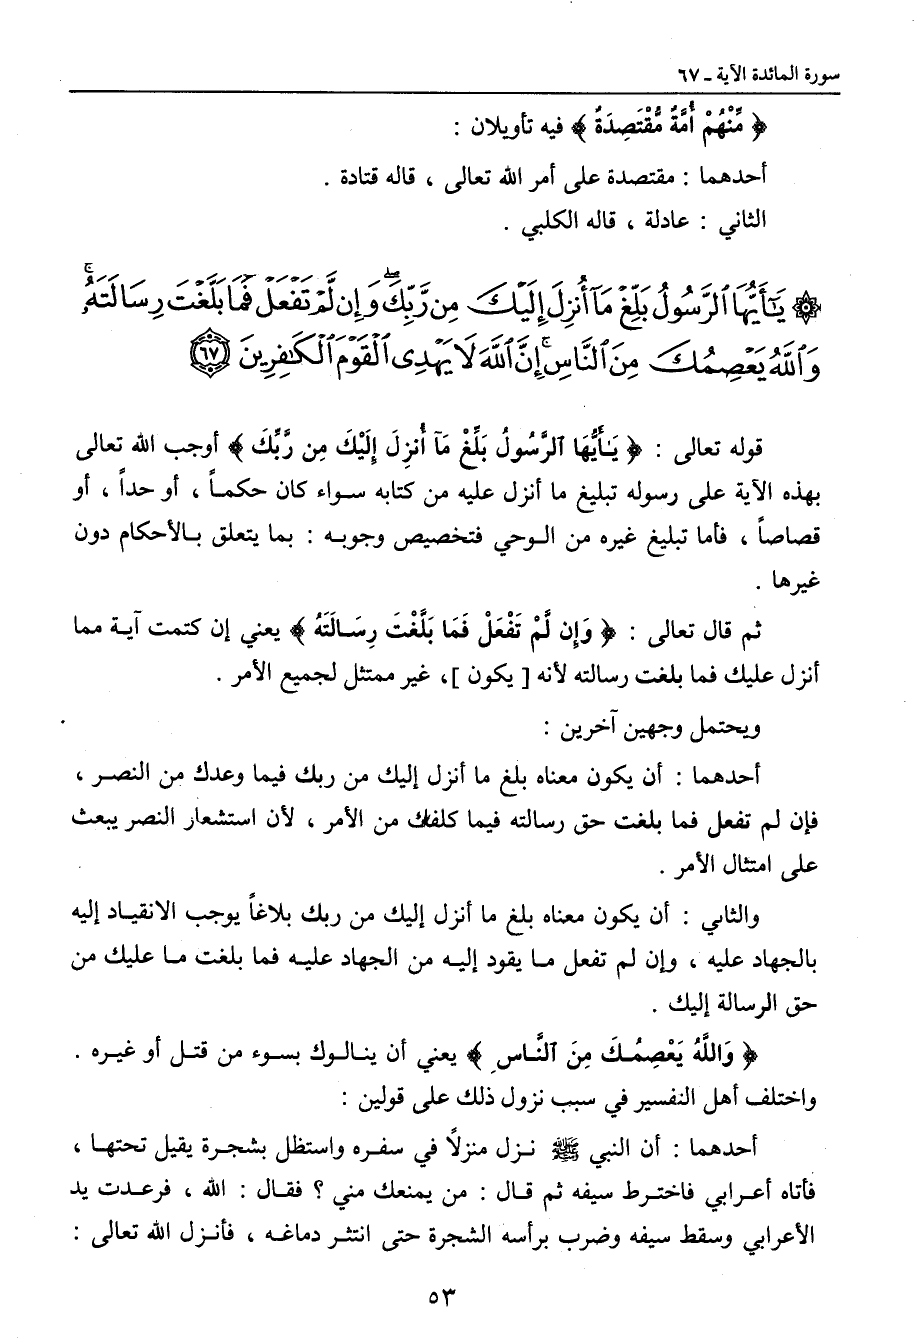 سورة المائدة الآية - ٦٧
﴿ مِّنْهُمْ أُمَّةٌ مُّقْتَصِدَةٌ ﴾ فيه تأويلان :
أحدهما : مقتصدة على أمر الله تعالى ، قاله قتادة .
الثاني : عادلة ، قاله الكلبي .
۞ يَـٰٓأَيُّهَا ٱلرَّسُولُ بَلِّغْ مَآ أُنزِلَ إِلَيْكَ مِن رَّبِّكَ ۖ وَإِن لَّمْ تَفْعَلْ فَمَا بَلَّغْتَ رِسَالَتَهُۥ ۚ
وَٱللَّهُ يَعْصِمُكَ مِنَ ٱلنَّاسِ ۗ إِنَّ ٱللَّهَ لَا يَهْدِى ٱلْقَوْمَ ٱلْكَـٰفِرِينَ ٦٧
قوله تعالى : ﴿ يَـٰأَيُّهَا ٱلرَّسُولُ بَلِّغْ مَآ أُنزِلَ إِلَيْكَ مِن رَّبِّكَ ﴾ أوجب الله تعالى
بهذه الآية على رسوله تبليغ ما أنزل عليه من كتابه سواء كان حكماً ، أو حداً ، أو
قصاصاً ، فأما تبليغ غيره من الوحي فتخصيص وجوبه : بما يتعلق بالأحكام دون
غيرها .
ثم قال تعالى : ﴿ وَإِن لَّمْ تَفْعَلْ فَمَا بَلَّغْتَ رِسَالَتَهُ ﴾ يعني إن كتمت آية مما
أنزل عليك فما بلغت رسالته لأنه [ يكون ]، غير ممتثل لجميع الأمر .
ويحتمل وجهين آخرين :
أحدهما : أن يكون معناه بلغ ما أنزل إليك من ربك فيما وعدك من النصر ،
فإن لم تفعل فما بلغت حق رسالته فيما كلفك من الأمر ، لأن استشعار النصر يبعث
على امتثال الأمر .
والثاني : أن يكون معناه بلغ ما أنزل إليك من ربك بلاغاً يوجب الانقياد إليه
بالجهاد عليه ، وإن لم تفعل ما يقود إليه من الجهاد عليه فما بلغت ما عليك من
حق الرسالة إليك .
﴿ وَاللَّهُ يَعْصِمُكَ مِنَ ٱلنَّاسِ ﴾ يعني أن ينالوك بسوء من قتل أو غيره .
واختلف أهل النفسير في سبب نزول ذلك على قولين :
أحدهما : أن النبي ﷺ نزل منزلاً في سفره واستظل بشجرة يقيل تحتها ،
فأتاه أعرابي فاخترط سيفه ثم قال : من يمنعك مني ؟ فقال : الله ، فرعدت يد
الأعرابي وسقط سيفه وضرب برأسه الشجرة حتى انتثر دماغه ، فأنزل الله تعالى :
٥٣